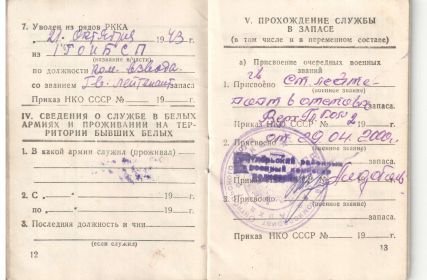 7. Уволен из рядов РККА
"21" октября 1943 г.
из 1ГОИБСП
(название части)
по должности ком. взвода
со званием Гв. лейтенант запаса
Приказ НКО СССР № 19 г.
IV. СВЕДЕНИЯ О СЛУЖБЕ В БЕЛЫХ
АРМИЯХ И ПРОЖИВАНИИ НА ТЕР-
РИТОРИИ БЫВШИХ БЕЛЫХ
1. В какой армии служил (проживал)
2. С 19 г.
по 19 г.
3. Последняя должность и чин
(если служил)
12
V. ПРОХОЖДЕНИЕ СЛУЖБЫ
В ЗАПАСЕ
(в том числе и в переменном составе)
а) Присвоение очередных военных
званий
1. Присвоено гв ст. лейте-
нант в отставке
запаса.
Приказ НКО СССР №
2. Присвоено от 29.04.2000г.
(военное звание)
запаса.
Приказ НКО СССР №
3. Присвоено
(военное звание)
запаса.
Приказ НКО СССР № 19 г.
13